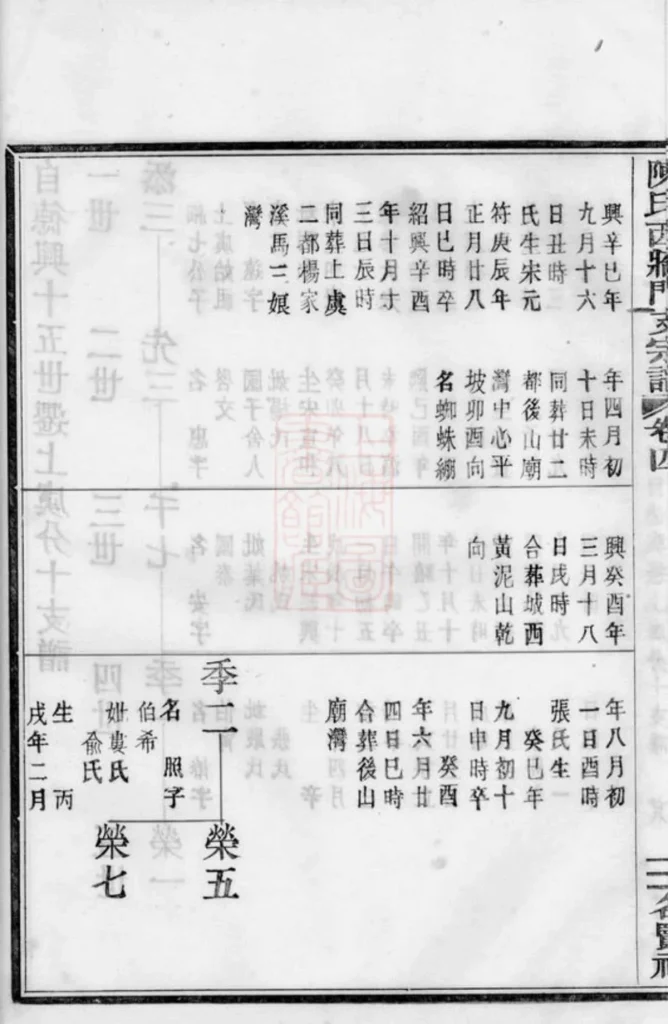 陳氏西牆門支宗譜 卷四
興辛巳年
九月十六
日丑時
氏生宋元
符庚辰年
正月廿八
日巳時卒
紹興辛酉
年十月廿
三日辰時
同葬上虞
二都楊家
溪馬三娘
灣
年四月初
十日未時
同葬廿二
都後山廟
灣中心平
坡卯酉向
名蜘蛛綳
興癸酉年
三月十八
日戌時
合葬城西
黃泥山乾
向
年八月初
一日酉時
張氏生
癸巳年
九月初十
日申時卒
癸酉
年六月廿
四日巳時
合葬後山
廟灣
季二
名 照字
伯希
妣婁氏
俞氏
生 丙
戌年二月
榮五
榮七